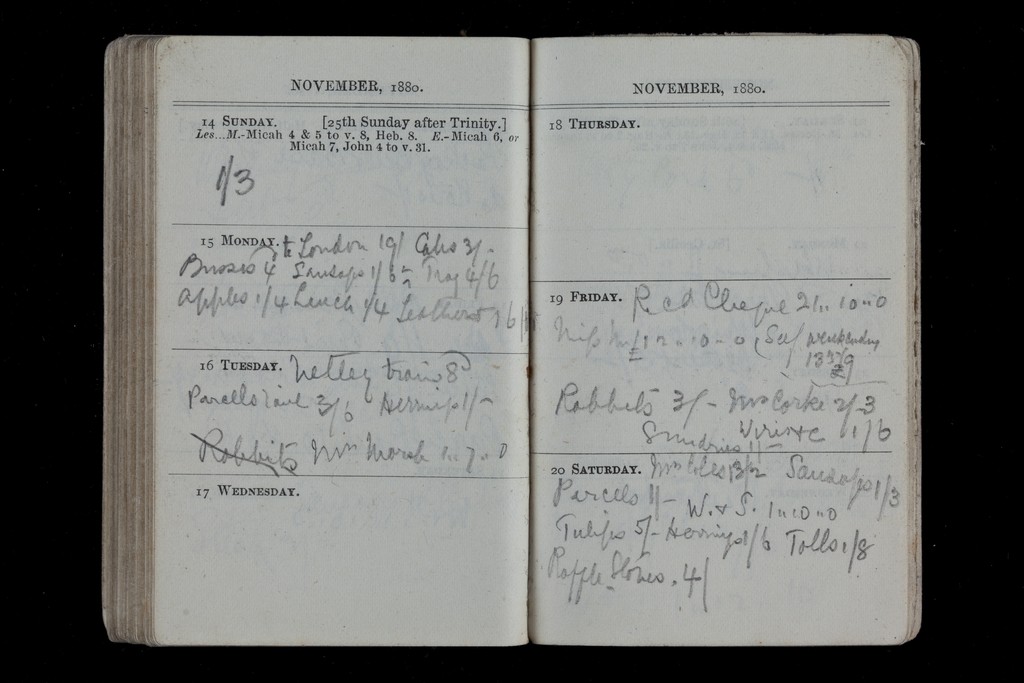 NOVEMBER, 1880.
14 SUNDAY. [25th Sunday after Trinity.]
Les...M.-Micah 4 & 5 to v. 8, Heb. 8. E.-Micah 6, or
Micah 7, John 4 to v. 31.
1/3
15 MONDAY. to London 19/ Cabs 3/-
Busses 4 Sausages 1/6 Tray 4/6
Apples 1/4 Lunch 1/4
16 TUESDAY. Netley train 8d
Parcells 3/6 Herrings 1/-
Rabbits Mrs Marsh 1..7..0
17 WEDNESDAY.
NOVEMBER, 1880.
18 THURSDAY.
19 FRIDAY. Recd Cheque 21..10..0
Miss £12..10..0 (Self weekending
Rabbits 3/- Mrs Corke 2/3
Sundries 1/- 1/6
20 SATURDAY. Mrs Coles 13/2 Sausages 1/3
Parcels 1/- W. & S. 1..10..0
Tulips 5/- Herrings 1/6 Tolls 1/8
Raffle Stokes. 4/